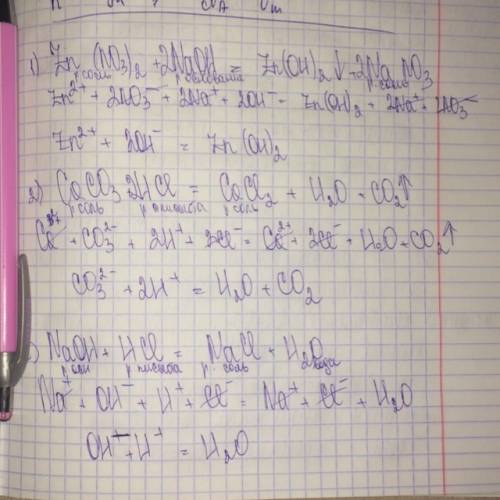 1) Zn(NO3)2 + 2NaOH = Zn(OH)2↓ + 2NaNO3
р соль р р соль
Zn2+ + 2NO3- + 2Na+ + 2OH- = Zn(OH)2 + 2Na+ + 2NO3-
Zn2+ + 2OH- = Zn(OH)2
2) CaCO3 2HCl = CaCl2 + H2O + CO2↑
р соль р кислота р соль
Ca2+ + CO3 2- + 2H+ + 2Cl- = Ca2+ + 2Cl- + H2O + CO2↑
CO3 2- + 2H+ = H2O + CO2
) NaOH + HCl = NaCl + H2O
р кислота р соль вода
Na+ + OH- + H+ + Cl- = Na+ + Cl- + H2O
OH- + H+ = H2O